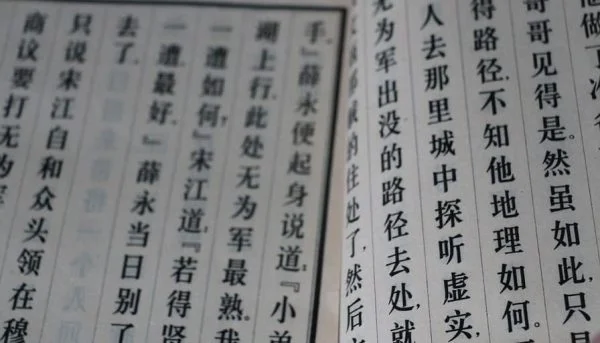 他做了
哥哥见得是。然虽如此,只
得路径,不知他地理如何。
人去那里城中探听虚实,
为军出没的路径去处,就
的住处了,然后
手。』薛永便起身说道:『小弟
湖上行。此处无为军最熟。我
一遭如何?』宋江道:『若得贤
一遭最好。』薛永当日别了
去了。
只说宋江自和众头领在穆
商议要打无为军